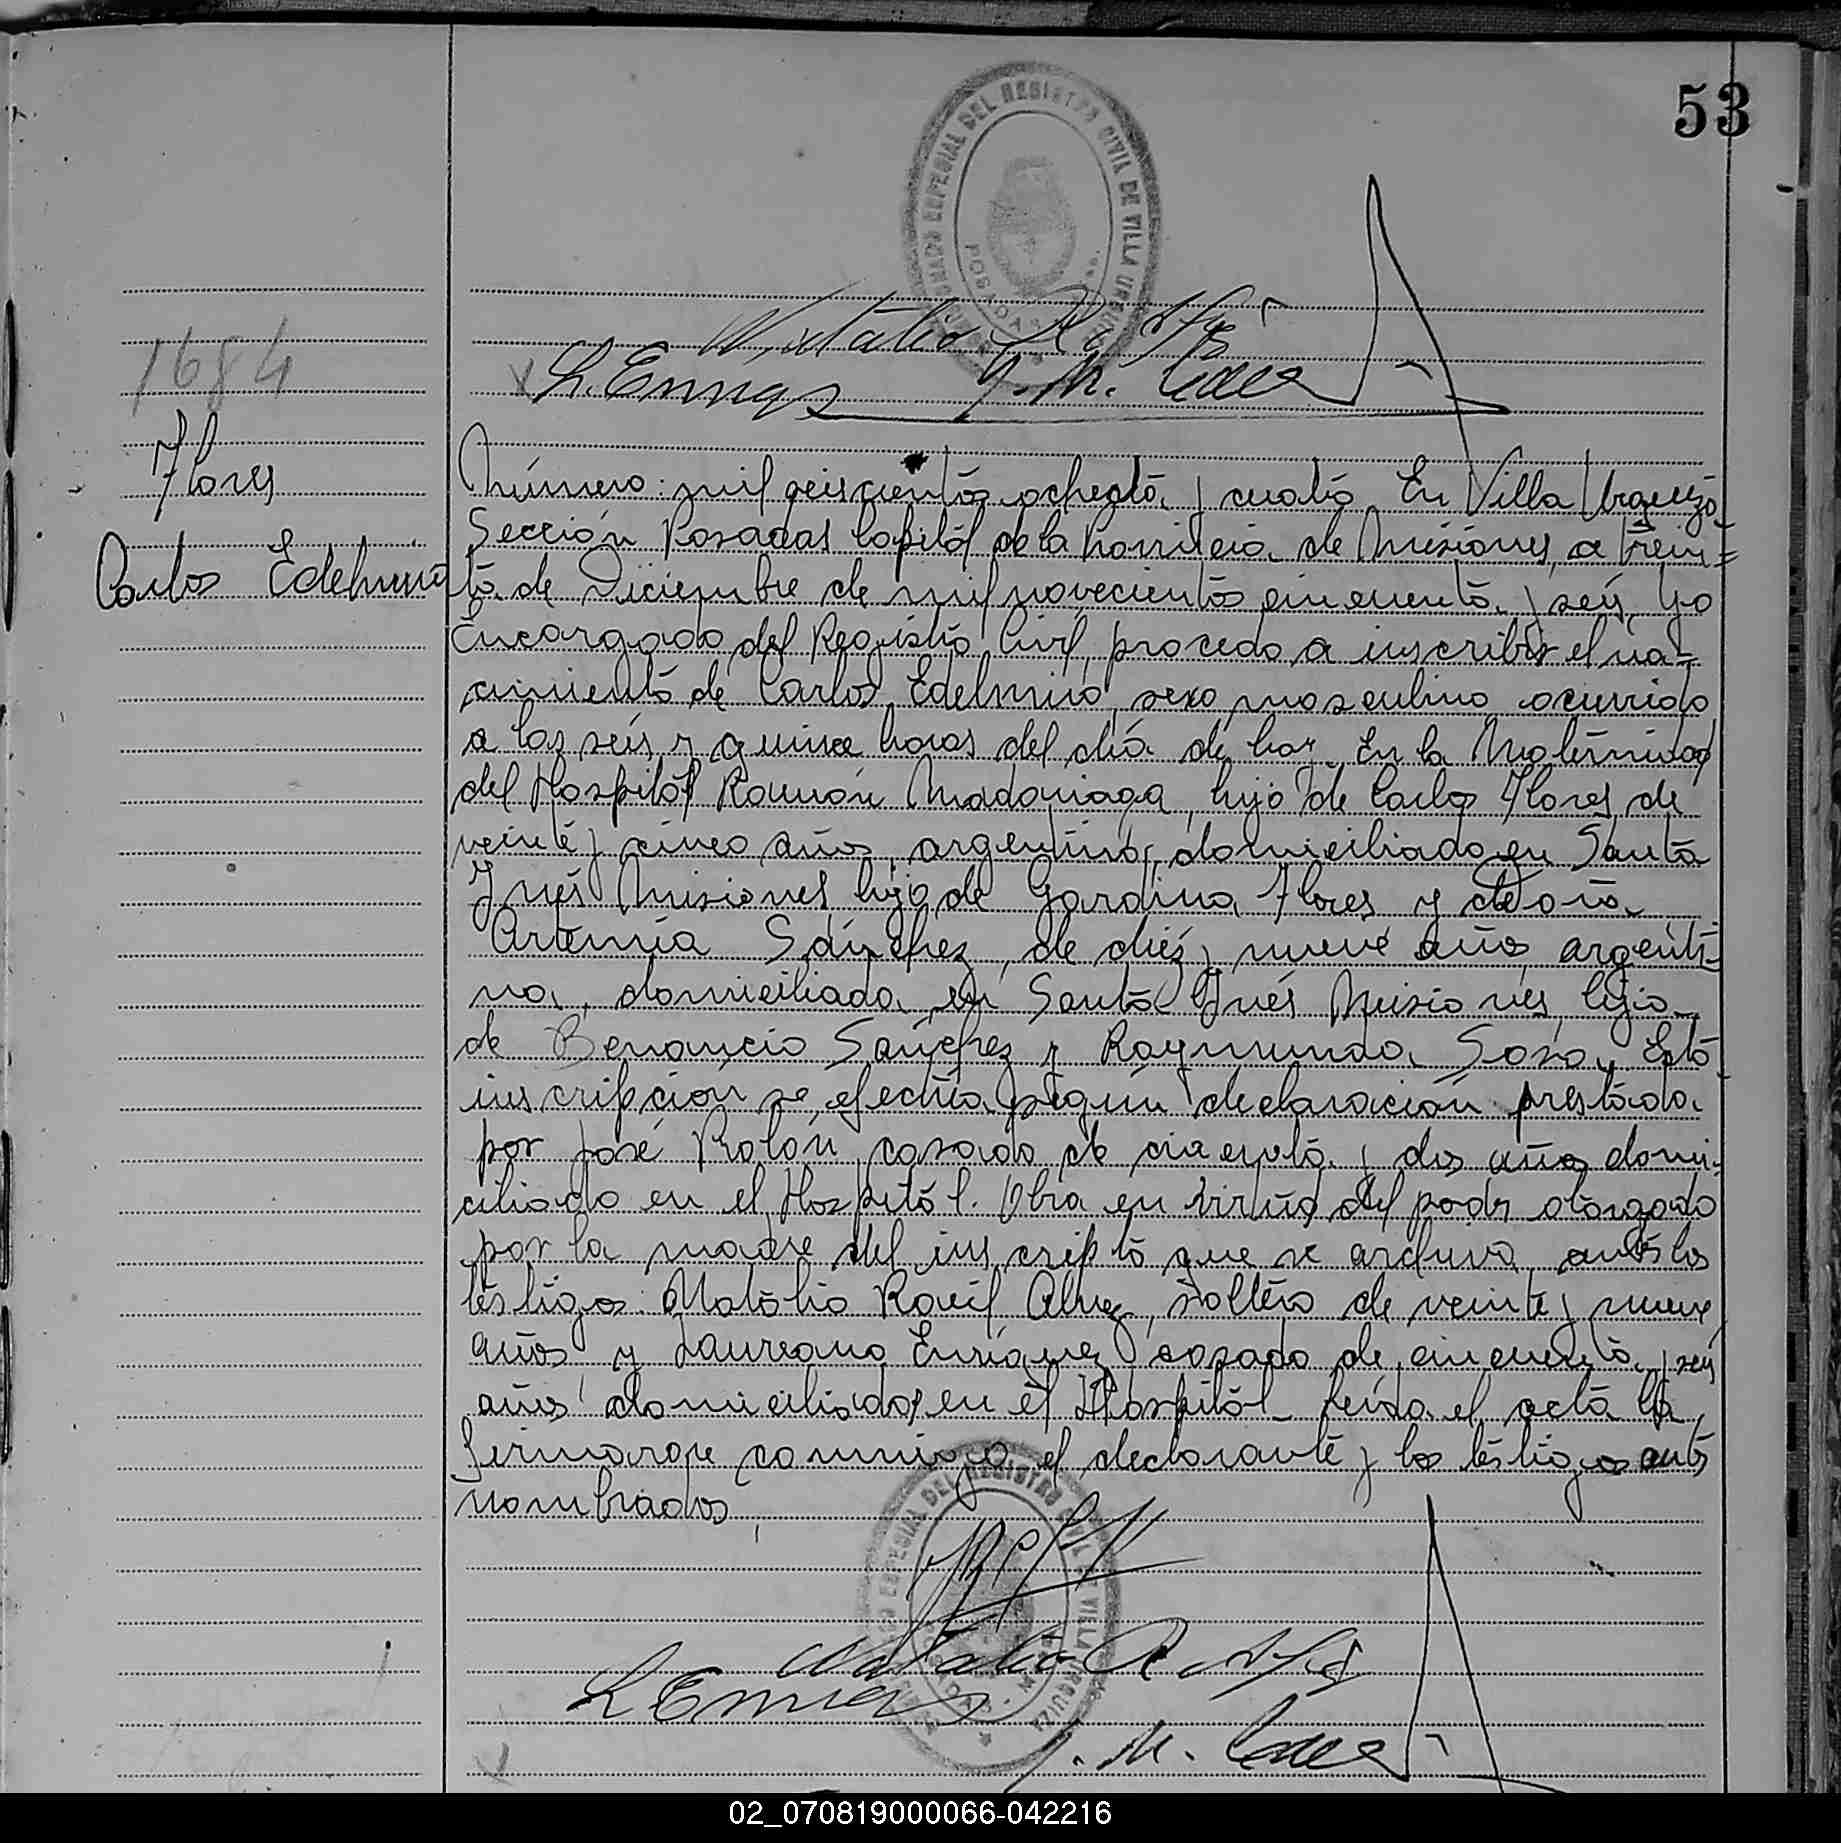 53
REGISTRO CIVIL DE VILLA URQUIZA
POSADAS
1684
Flores
Carlos Edelmiro
Número: mil seiscientos ochenta y cuatro En Villa Urquiza
Sección Posadas Capital de la Provincia de Misiones, a trein=
ta de Diciembre de mil novecientos cincuenta y seis, Yo
Encargado del Registro Civil, procedo a inscribir el na-
cimiento de Carlos Edelmiro, sexo masculino ocurrido
a las seis y quince horas del día de hoy En la Maternidad
del Hospital Ramón Madariaga, hijo de Carlos Flores de
veinte y cinco años, argentino, domiciliado en Santa
Ynés Misiones hijo de Gardina Flores y de doña
Artemia Sánchez, de diez y nueve años argenti-
na, domiciliada en Santa Ynés Misiones, hija
de Benancio Sánchez y Raymunda Sosa. Esta
inscripción se efectúa según declaración prestada
por José Rolón, casado de cincuenta y dos años domi-
ciliado en el Hospital. Obra en virtud del poder otorgado
por la madre del inscripto que se archiva, ante los
testigos: Natalio Raúl Alvez, soltero de veinte y nueve
años y Laureano Enriquez casado de cincuenta y seis
años domiciliados en el Hospital_ Leída el acta la
firmaron conmigo el declarante y los testigos antes
nombrados,
REGISTRO CIVIL DE VILLA URQUIZA
POSADAS
02_070819000066-042216